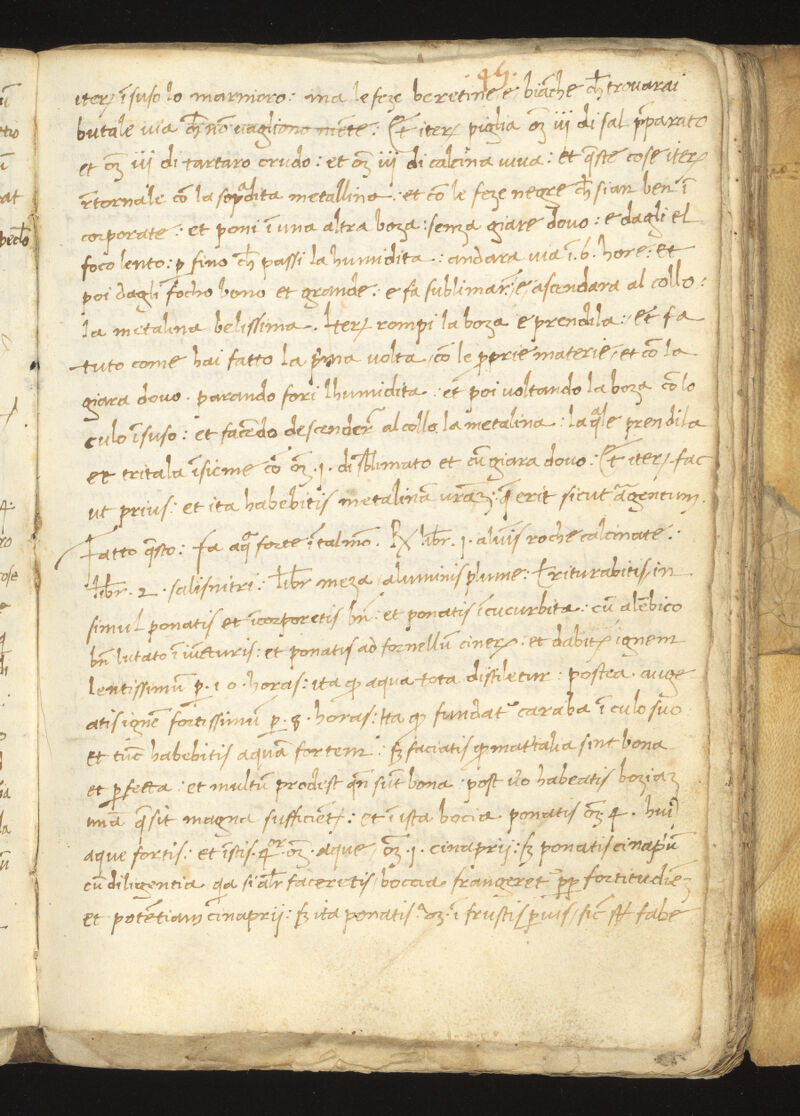 45.
iterꝝ ĩsuso lo marmoro: ma le feze beretine e biãche ch̃ trovarai
butale via ch̃ nõ vagliono niẽte: Et iterꝝ piglia oz̃ iij di sal p̃parato
et oz̃ iij di tartaro crudo: et oz̃ iij di calcina viva: et q̃ste cose iterꝝ
r̃tornale cõ la sop̃dita metallina: et cõ le feze negre ch̃ sian ben ĩ
corporate: et poni ĩ una altra boza: senza giare dovo: e dagli el
foco lento: ꝑ fino ch̃ passi la humidita: andara via ĩ .6. hore: et
poi dagli focho bono et grande: e fa sublimar̃ e ascendara al collo:
la metalina belissima. Iterꝝ rompi la boza e prendila: et fa
tuto come hai fatto la p̃ma volta, cõ le proprie materie, et cõ la
giara dovo. parando fori lhumidita: et poi voltando la boza cõ lo
culo ĩsuso: et facẽdo descender̃ al collo la metalina: la q̃le prendila
et tritala ĩsieme cõ oz̃ .1. di sblimato et cũ giara dovo: Et iterꝝ fac
ut prius: et ita habebitis metalinã vrãz̃: q̃ erit sicut argentum.
Fatto q̃sto: fa aq̃ forte ĩ talmõ. ℞ libr̃ .1. alumĩs roche calcinate:
libr̃ .2. salisnitri: libr̃ meza aluminis plume: Triturabitis, in
simul ponatis et ĩcorporetis bñ: et ponatis ĩ cucurbita: cũ alẽbico
bñ lutato ĩ iũcturis: et ponatis ad fornellũ cinerꝝ: et dabitꝝ ignem
lentissimũ ꝑ .10. horas: ita ꝙ aqua tota distiletur: postea auge
atis ignẽ fortissimũ ꝑ .8. horas: Ita ꝙ fundat᷑ caraba ĩ culo suo
et tũc habebitis aquã fortem: sꝫ faciatis ꝙ mat̃ialia sint bona
et ꝑfetta: et multũ prodest qñ sũt bona: post v̊o habeatis boziaz
unã q̃ sit magna sufficiẽt: et ĩ ista bocia ponatis oz̃ 4. hui᷒
aque fortis: et ĩ istis 4or oz̃ aque, oz̃ .1. cinaprij: sꝫ ponatis cinapiũ
cũ diligentia q̃a si alr̃ faceretis, boccia frangeret᷑ ꝓp fortitudiẽz
et potẽtiam cinaprij: sꝫ ita ponatis oz̃ ĩ frustis ꝑvis, sic̃ st̃ fabe